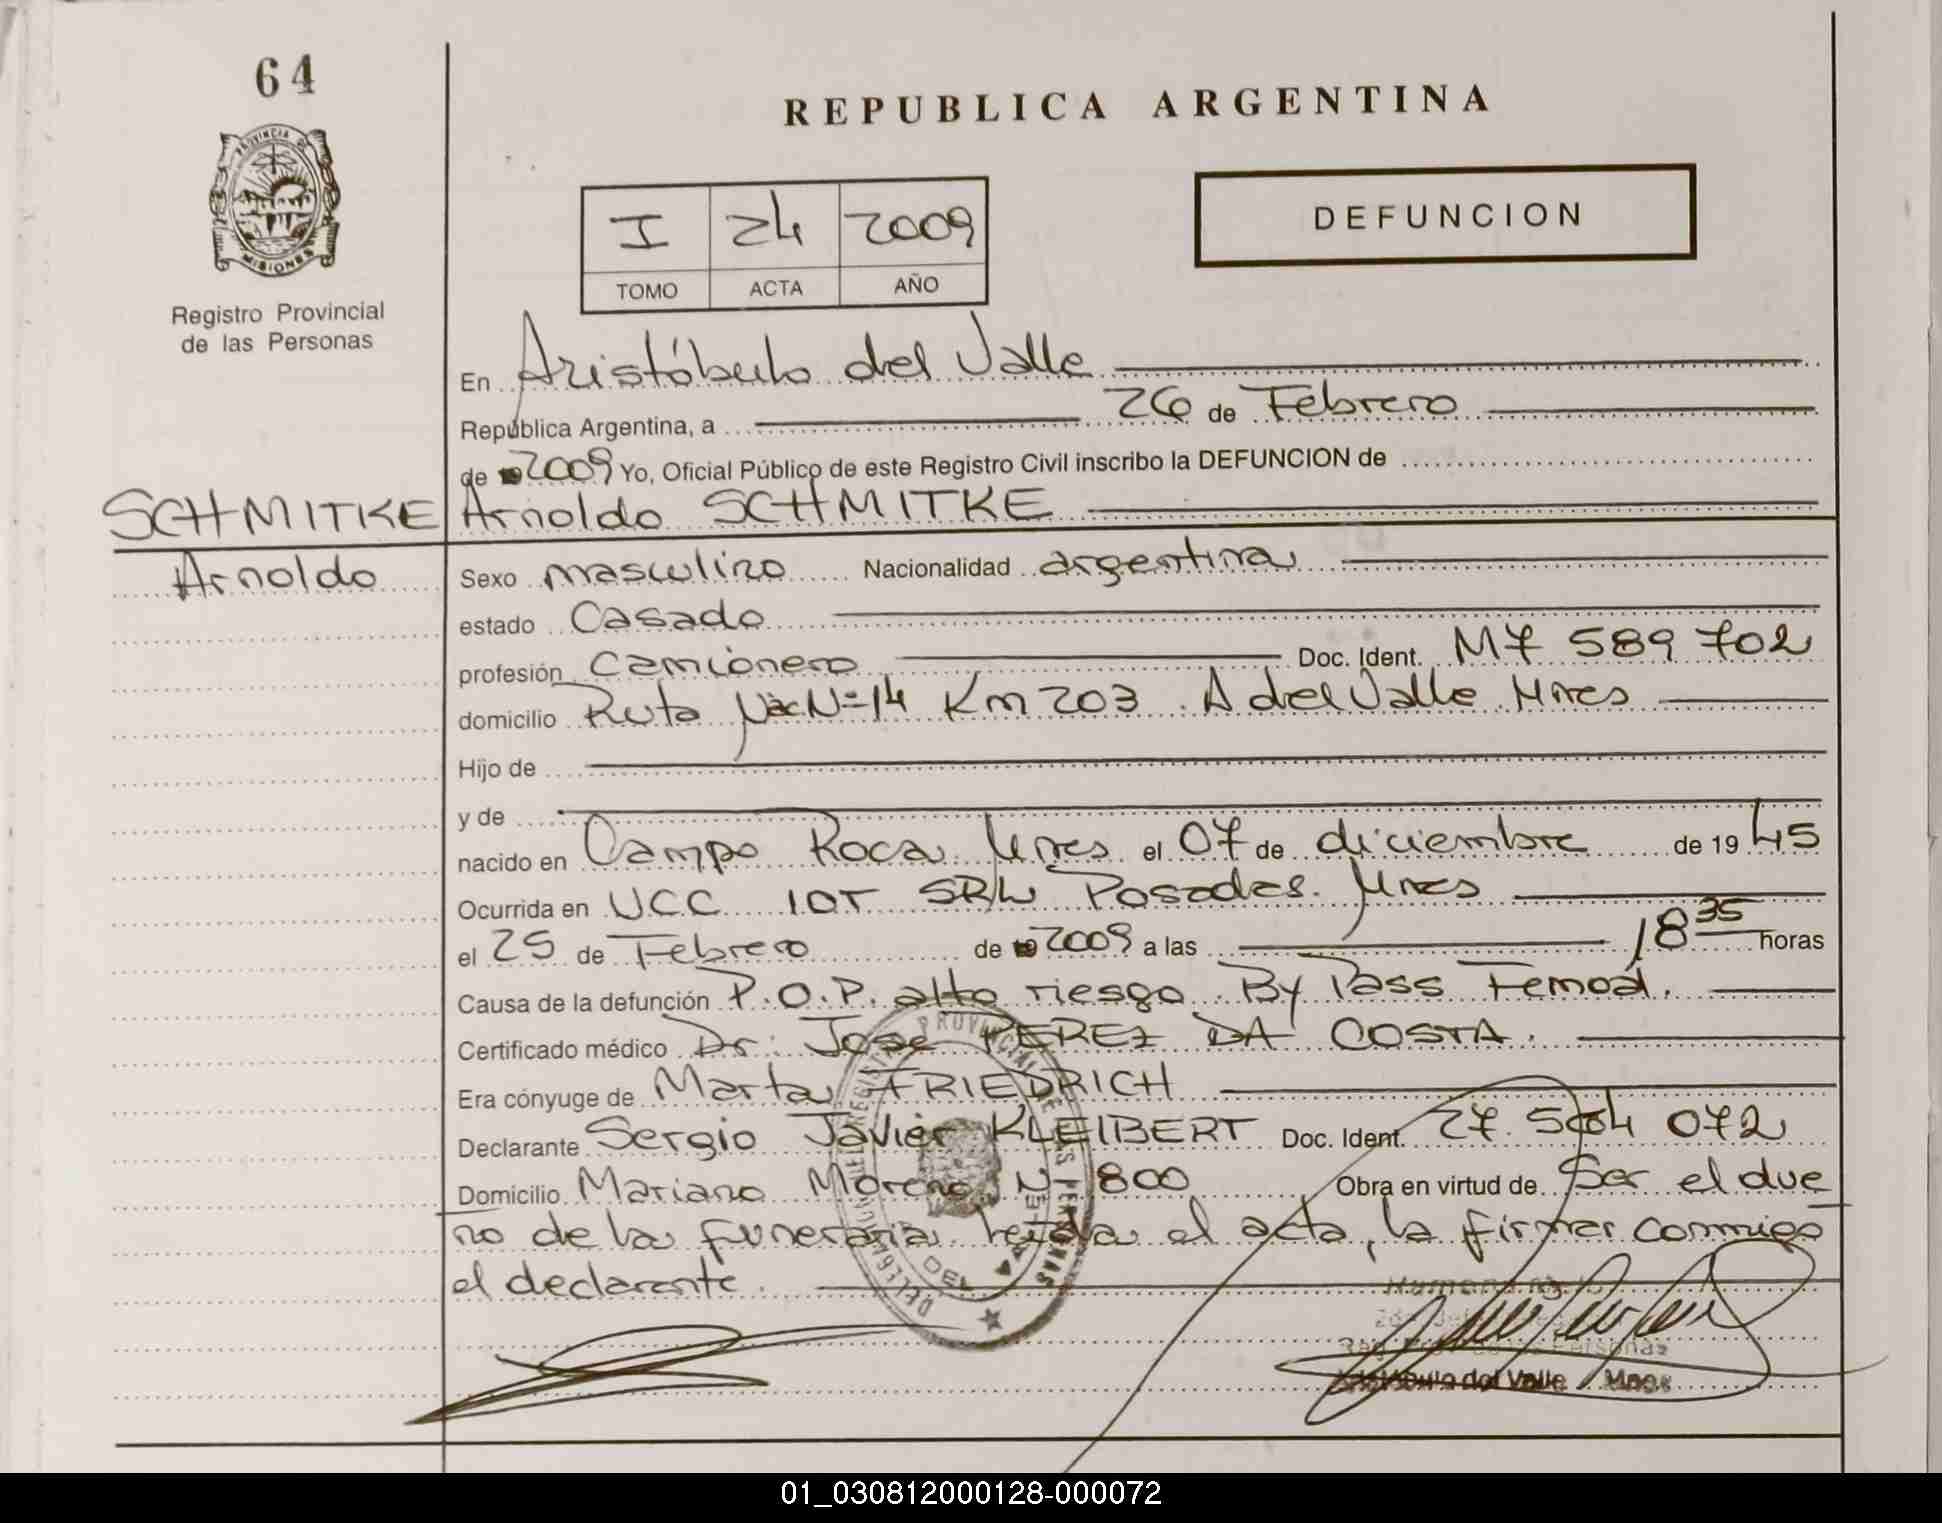 64
PROVINCIA DE
MISIONES
Registro Provincial
de las Personas
REPUBLICA ARGENTINA
I 24 2009
TOMO ACTA AÑO
DEFUNCION
En Aristóbulo del Valle
República Argentina, a 26 de Febrero
de 2009 Yo, Oficial Público de este Registro Civil inscribo la DEFUNCION de
SCHMITKE Arnoldo SCHMITKE
Arnoldo Sexo masculino Nacionalidad argentina
estado Casado
profesión camionero Doc. Ident. M7 589 702
domicilio Ruta Nac Nº 14 Km 203 A del Valle Mnes
Hijo de
y de
nacido en Campo Roca Mnes el 07 de diciembre de 19 45
Ocurrida en UCC IOT SRL Posadas. Mnes
el 25 de Febrero de 2009 a las 18 35 horas
Causa de la defunción P.O.P. alto riesgo By Pass Femoal.
Certificado médico Dr. Jose PEREZ DA COSTA.
Era cónyuge de Marta FRIEDRICH
Declarante Sergio Javier KLEIBERT Doc. Ident. 27 564 072
Domicilio Mariano Moreno Nº 800 Obra en virtud de Ser el due
no de la funeraria. leida el acta, la firman conmigo
el declarante.
DELEG REGISTRO PROVINCIAL DE LAS PERSONAS
Reg. Personas
Aristóbulo del Valle Mnes
01_030812000128-000072